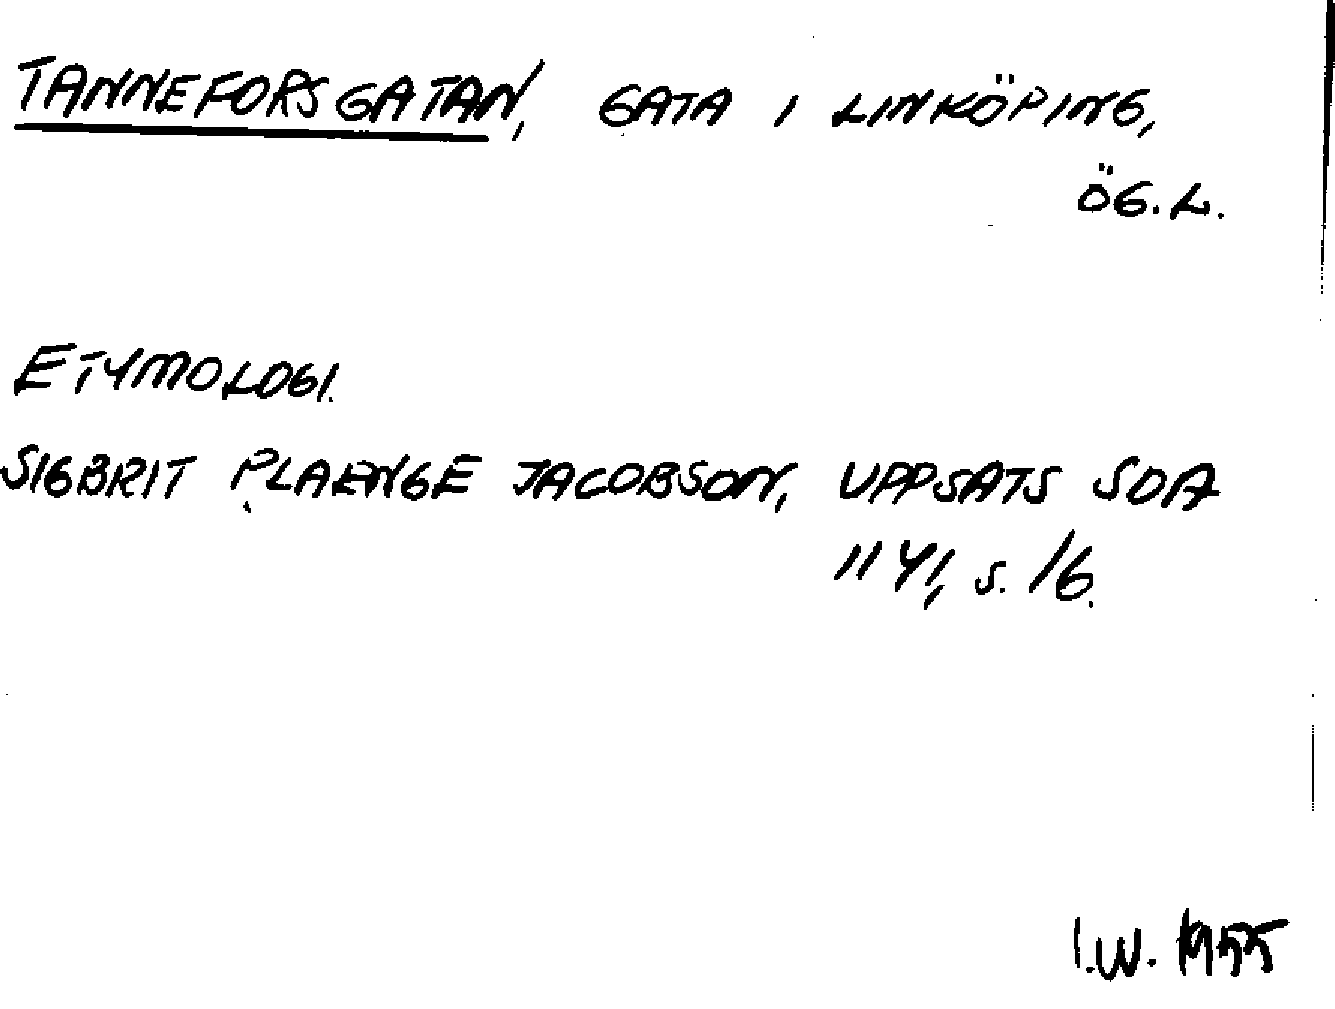 TANNEFORSGATAN, GATA I LINKÖPING,
ÖG. L.
ETYMOLOGI.
SIGBRIT PLAENGE JACOBSON, UPPSATS SOA
11 41, s. 16.
I.W. 1955